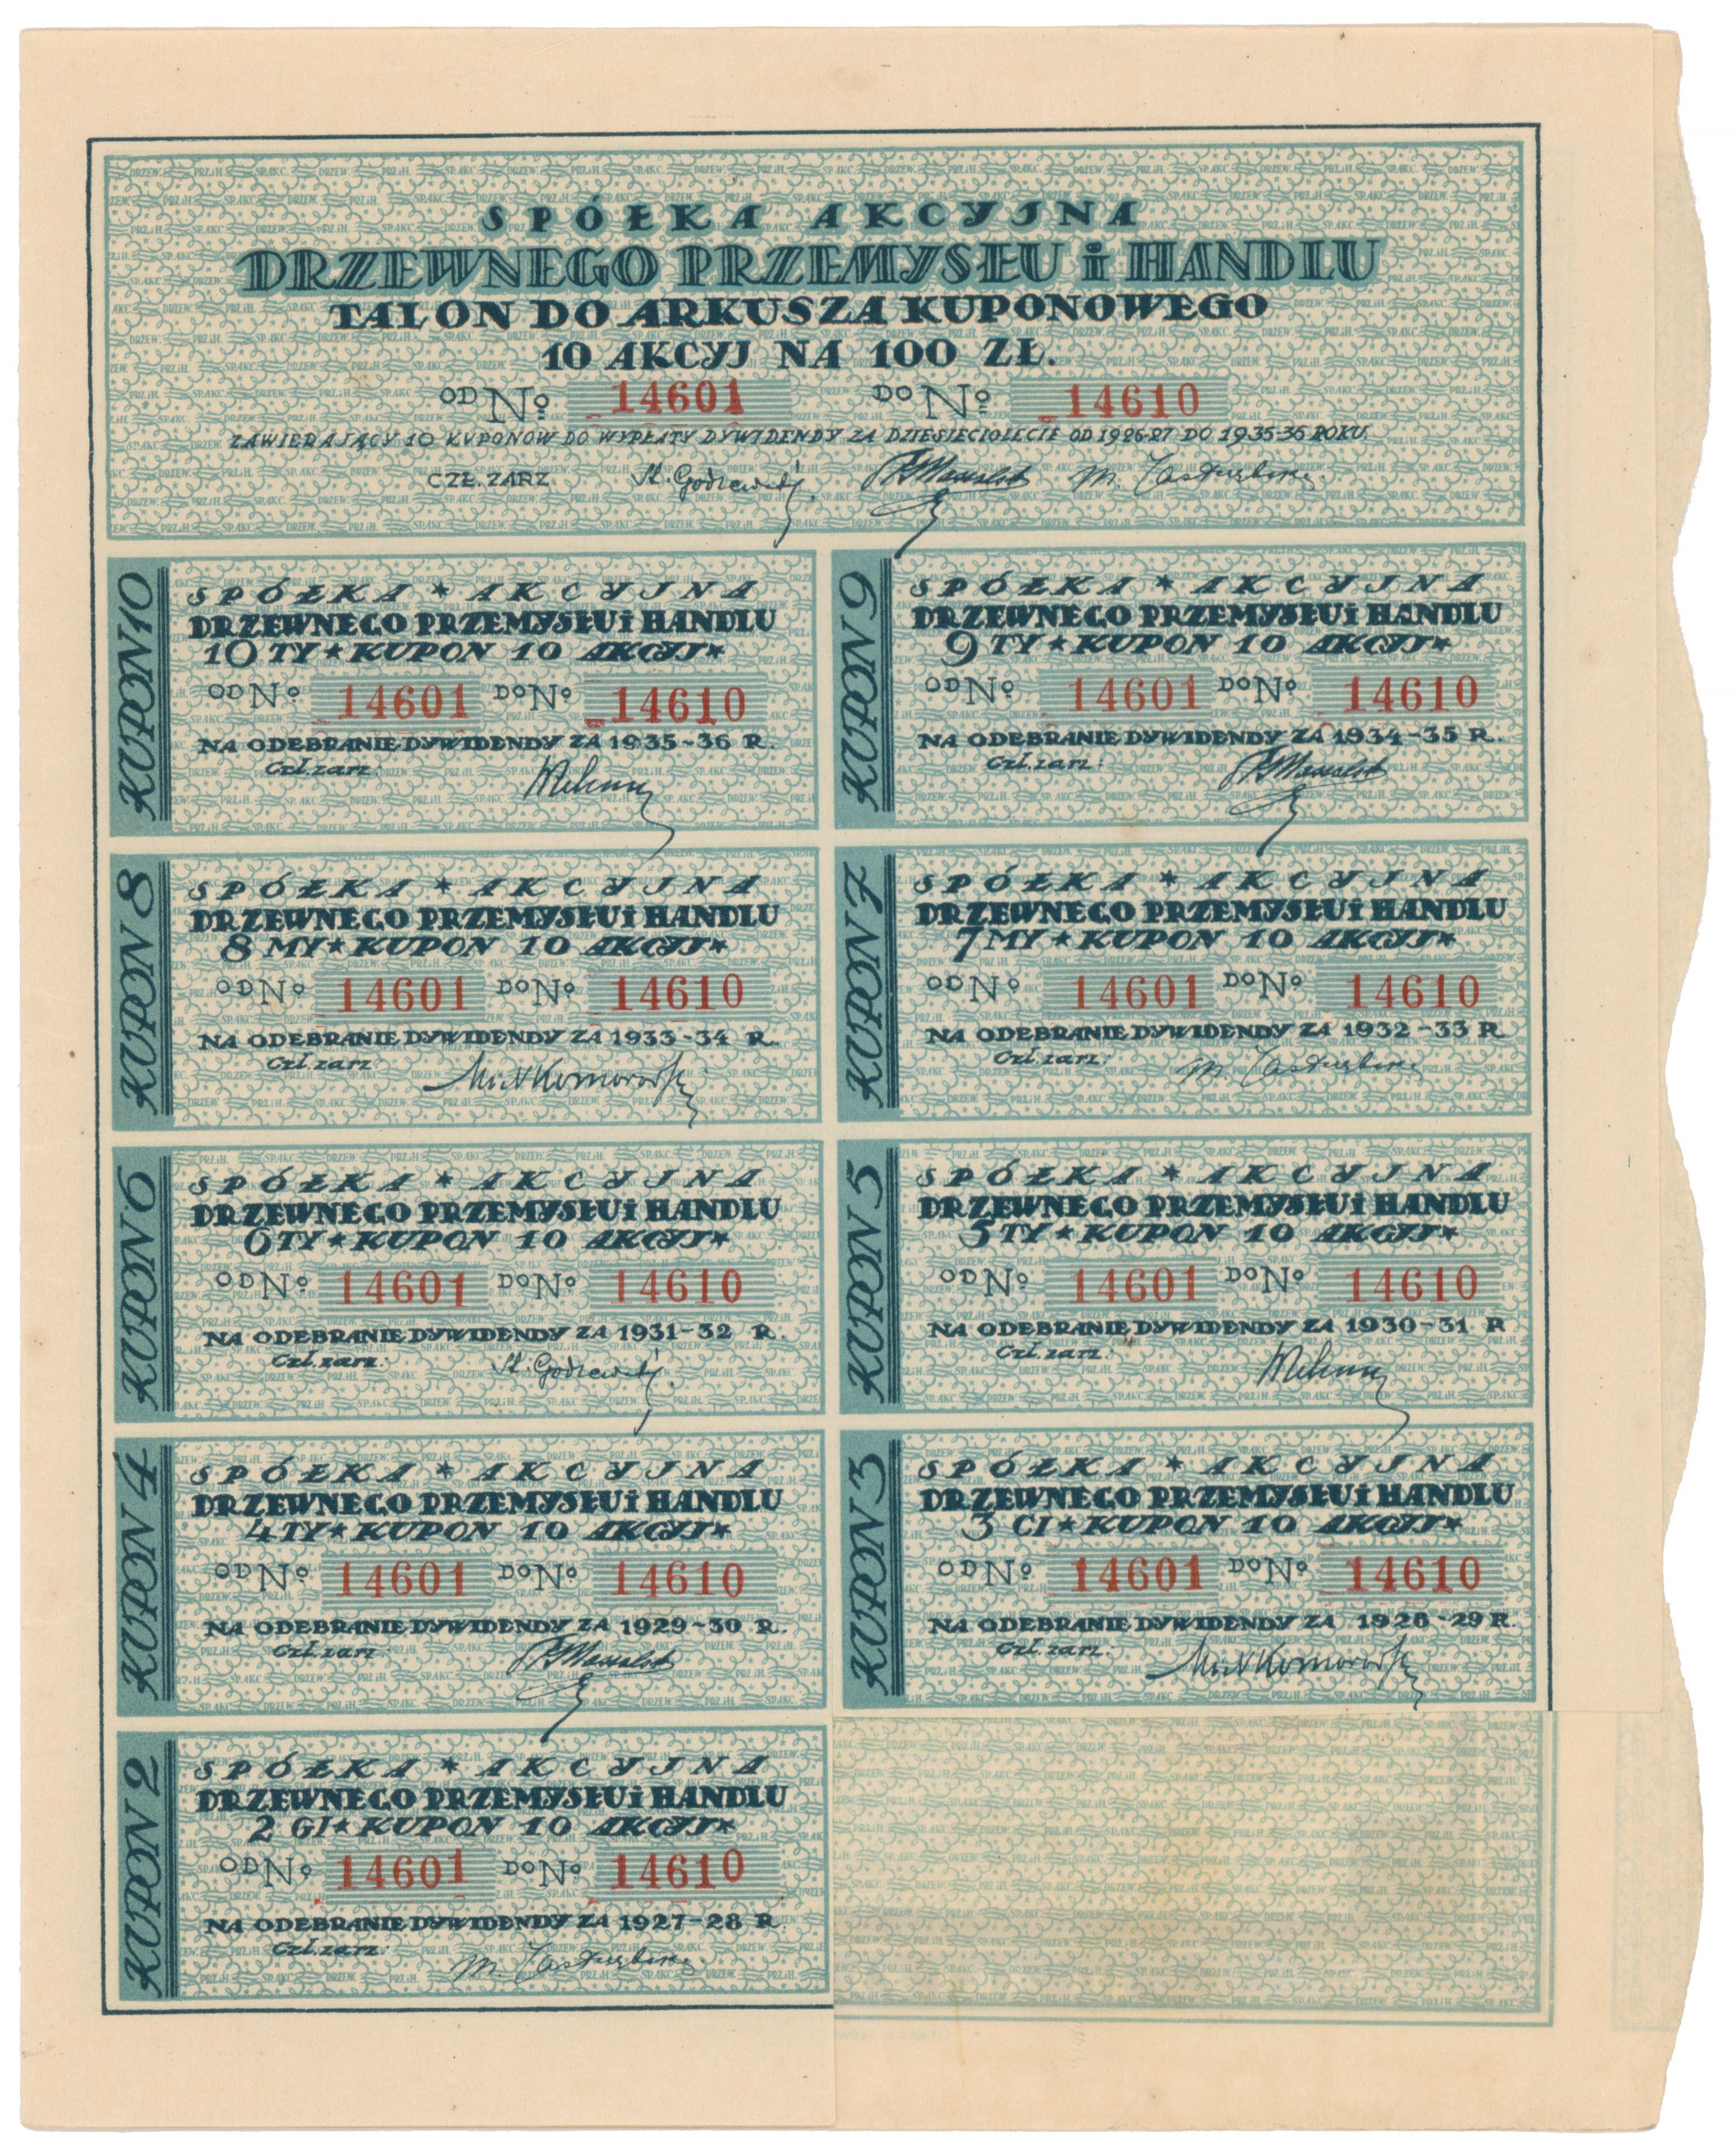 SPÓŁKA AKCYJNA
DRZEWNEGO PRZEMYSŁU i HANDLU
TALON DO ARKUSZA KUPONOWEGO
10 AKCYJ NA 100 ZŁ.
OD № 14601 DO № 14610
ZAWIERAJĄCY 10 KUPONÓW DO WYPŁATY DYWIDENDY ZA DZIESIĘCIOLECIE OD 1926-27 DO 1935-36 ROKU
CZŁ. ZARZ
KUPON 10
SPÓŁKA * AKCYJNA
DRZEWNEGO PRZEMYSŁU i HANDLU
10 TY * KUPON 10 AKCYJ *
OD № 14601 DO № 14610
NA ODEBRANIE DYWIDENDY ZA 1935-36 R.
Czł. zarz:
KUPON 9
SPÓŁKA * AKCYJNA
DRZEWNEGO PRZEMYSŁU i HANDLU
9 TY * KUPON 10 AKCYJ *
OD № 14601 DO № 14610
NA ODEBRANIE DYWIDENDY ZA 1934-35 R.
Czł. zarz:
KUPON 8
SPÓŁKA * AKCYJNA
DRZEWNEGO PRZEMYSŁU i HANDLU
8 MY * KUPON 10 AKCYJ *
OD № 14601 DO № 14610
NA ODEBRANIE DYWIDENDY ZA 1933-34 R.
Czł. zarz:
KUPON 7
SPÓŁKA * AKCYJNA
DRZEWNEGO PRZEMYSŁU i HANDLU
7 MY * KUPON 10 AKCYJ *
OD № 14601 DO № 14610
NA ODEBRANIE DYWIDENDY ZA 1932-33 R
Czł. zarz:
KUPON 6
SPÓŁKA * AKCYJNA
DRZEWNEGO PRZEMYSŁU i HANDLU
6 TY * KUPON 10 AKCYJ *
OD № 14601 DO № 14610
NA ODEBRANIE DYWIDENDY ZA 1931-32 R.
Czł. zarz:
KUPON 5
SPÓŁKA * AKCYJNA
DRZEWNEGO PRZEMYSŁU i HANDLU
5 TY * KUPON 10 AKCYJ *
OD № 14601 DO № 14610
NA ODEBRANIE DYWIDENDY ZA 1930-31 R
Czł. zarz:
KUPON 4
SPÓŁKA * AKCYJNA
DRZEWNEGO PRZEMYSŁU i HANDLU
4 TY * KUPON 10 AKCYJ *
OD № 14601 DO № 14610
NA ODEBRANIE DYWIDENDY ZA 1929-30 R.
Czł. zarz:
KUPON 3
SPÓŁKA * AKCYJNA
DRZEWNEGO PRZEMYSŁU i HANDLU
3 CI * KUPON 10 AKCYJ *
OD № 14601 DO № 14610
NA ODEBRANIE DYWIDENDY ZA 1928-29 R.
Czł. zarz.
KUPON 2
SPÓŁKA * AKCYJNA
DRZEWNEGO PRZEMYSŁU i HANDLU
2 GI * KUPON 10 AKCYJ *
OD № 14601 DO № 14610
NA ODEBRANIE DYWIDENDY ZA 1927-28 R.
Czł. zarz: